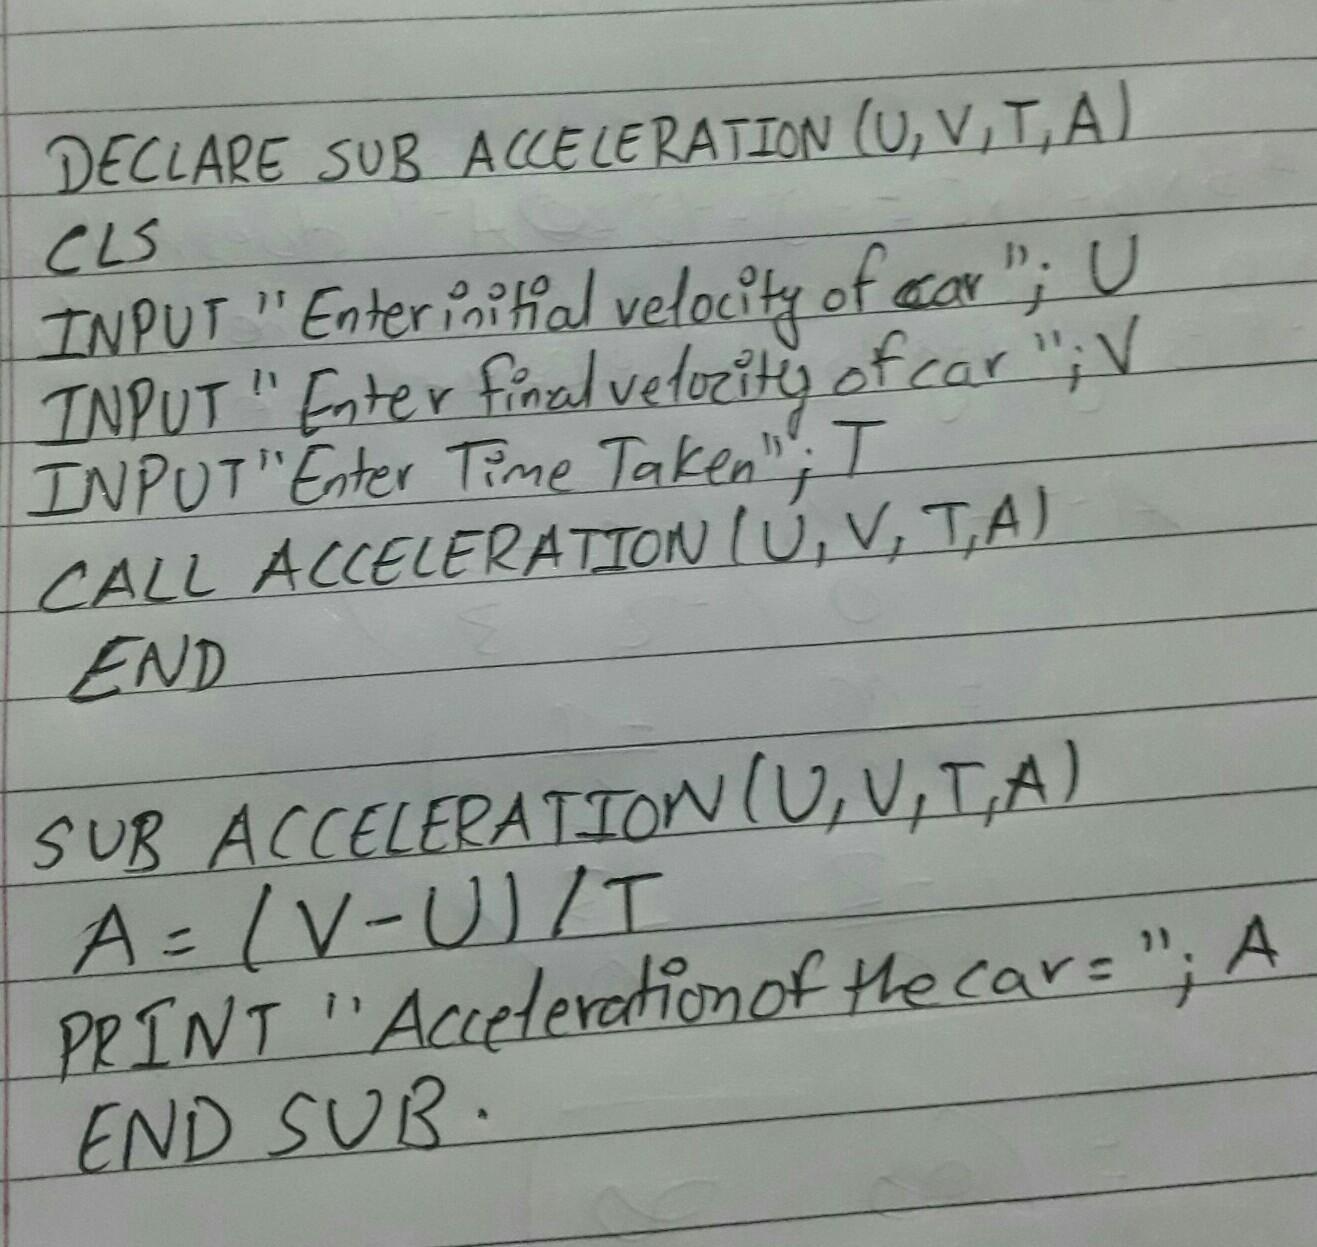 DECLARE SUB ACCELERATION (U, V, T, A)
CLS
INPUT "Enter initial velocity of car"; U
INPUT "Enter final velocity of car"; V
INPUT "Enter Time Taken"; T
CALL ACCELERATION (U, V, T, A)
END
SUB ACCELERATION (U, V, T, A)
A = (V - U) / T
PRINT "Acceleration of the car = "; A
END SUB.